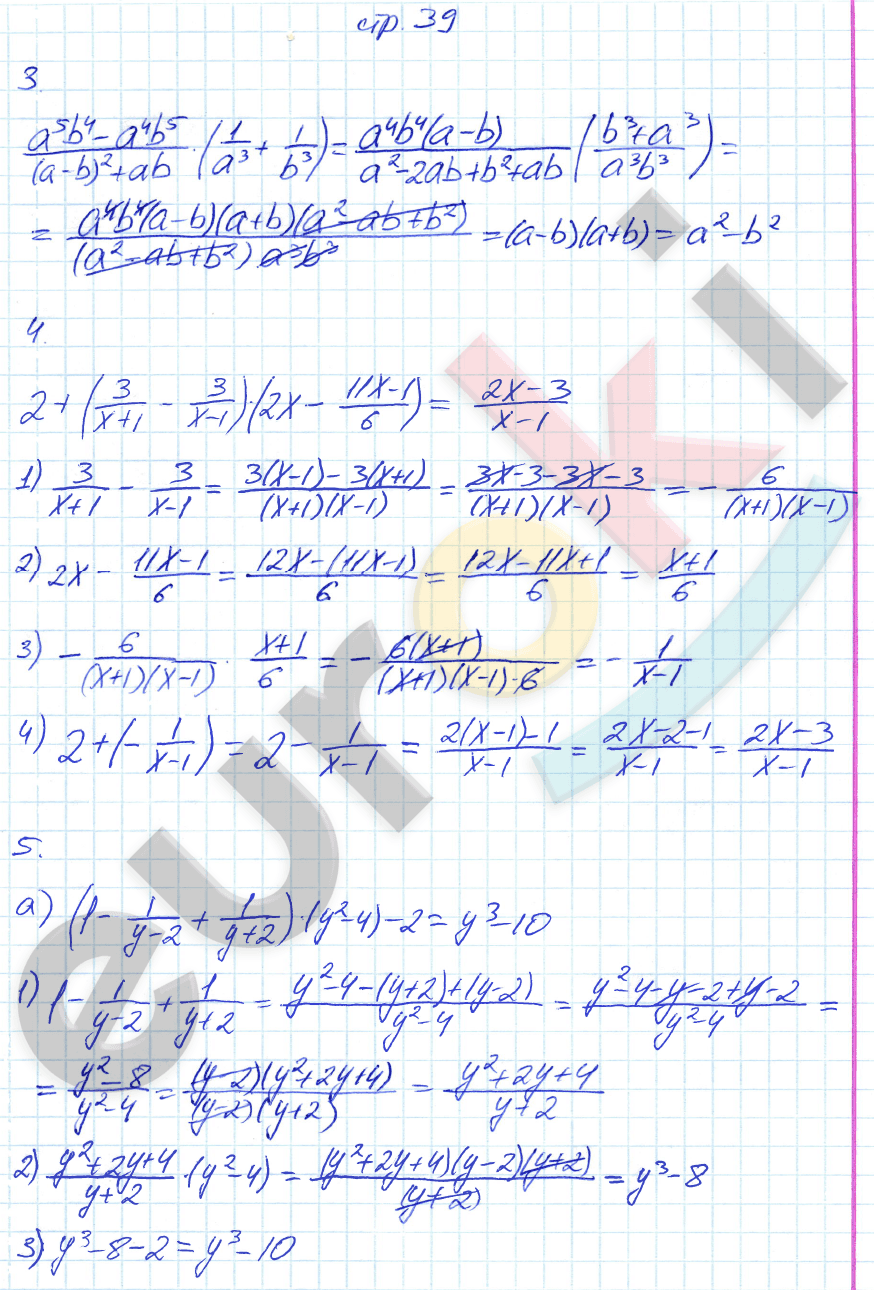 стр. 39
3.
(a⁵b⁴ - a⁴b⁵)/((a-b)² + ab) · (1/a³ + 1/b³) = (a⁴b⁴(a-b))/(a² - 2ab + b² + ab) ((b³ + a³)/(a³b³)) =
= (a⁴b⁴(a-b)(a+b)(a² - ab + b²))/((a² - ab + b²) a³b³) = (a-b)(a+b) = a² - b²
4.
2 + (3/(x+1) - 3/(x-1))·(2x - (11x-1)/6) = (2x-3)/(x-1)
1) 3/(x+1) - 3/(x-1) = (3(x-1) - 3(x+1))/((x+1)(x-1)) = (3x-3-3x-3)/((x+1)(x-1)) = - 6/((x+1)(x-1))
2) 2x - (11x-1)/6 = (12x-(11x-1))/6 = (12x-11x+1)/6 = (x+1)/6
3) - 6/((x+1)(x-1)) · (x+1)/6 = - (6(x+1))/((x+1)(x-1)·6) = - 1/(x-1)
4) 2 + (- 1/(x-1)) = 2 - 1/(x-1) = (2(x-1)-1)/(x-1) = (2x-2-1)/(x-1) = (2x-3)/(x-1)
5.
а) (1 - 1/(y-2) + 1/(y+2))·(y²-4) - 2 = y³ - 10
1) 1 - 1/(y-2) + 1/(y+2) = (y²-4-(y+2)+(y-2))/(y²-4) = (y²-4-y-2+y-2)/(y²-4) =
= (y²-8)/(y²-4) = ((y-2)(y²+2y+4))/((y-2)(y+2)) = (y²+2y+4)/(y+2)
2) (y²+2y+4)/(y+2) · (y²-4) = ((y²+2y+4)(y-2)(y+2))/(y+2) = y³-8
3) y³-8-2 = y³-10
euroki